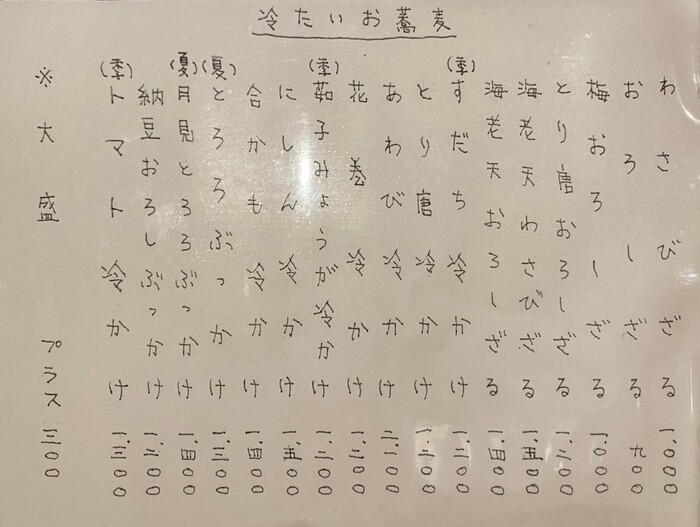 冷たいお蕎麦
わさびざる 一、〇〇〇
おろしざる 九〇〇
梅おろしざる 一、〇〇〇
とり唐おろしざる 一、二〇〇
海老天わさびざる 一、五〇〇
海老天おろしざる 一、四〇〇
(季)すだち冷かけ 一、一〇〇
とり唐冷かけ 一、二〇〇
あわび冷かけ 二、二〇〇
花巻冷かけ 一、二〇〇
(季)茹子みょうが冷かけ 一、二〇〇
にしん冷かけ 一、五〇〇
合かも冷かけ 一、四〇〇
(夏)とろろぶっかけ 一、三〇〇
(夏)月見とろろぶっかけ 一、四〇〇
納豆おろしぶっかけ 一、二〇〇
(季)トマト冷かけ 一、三〇〇
※大盛 プラス 三〇〇